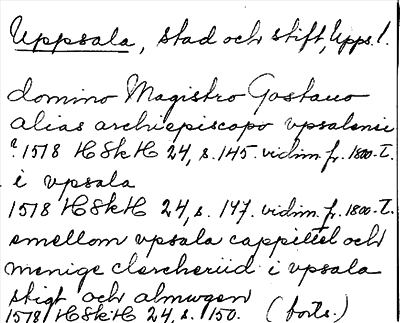 Uppsala, stad och stift, Upps. l.
domino Magistro Gostavo
alias archiepiscopo vpsalensi
? 1578 HSkH 24, s. 145. vidim. fr. 1800-T.
i vpsala
1578 HSkH 24, s. 147. vidim. fr. 1800-T.
emellom vpsala cappittel och
menige clercheriid i vpsala
stigt och almwgen
1578 HSkH 24, s. 150. (forts.)